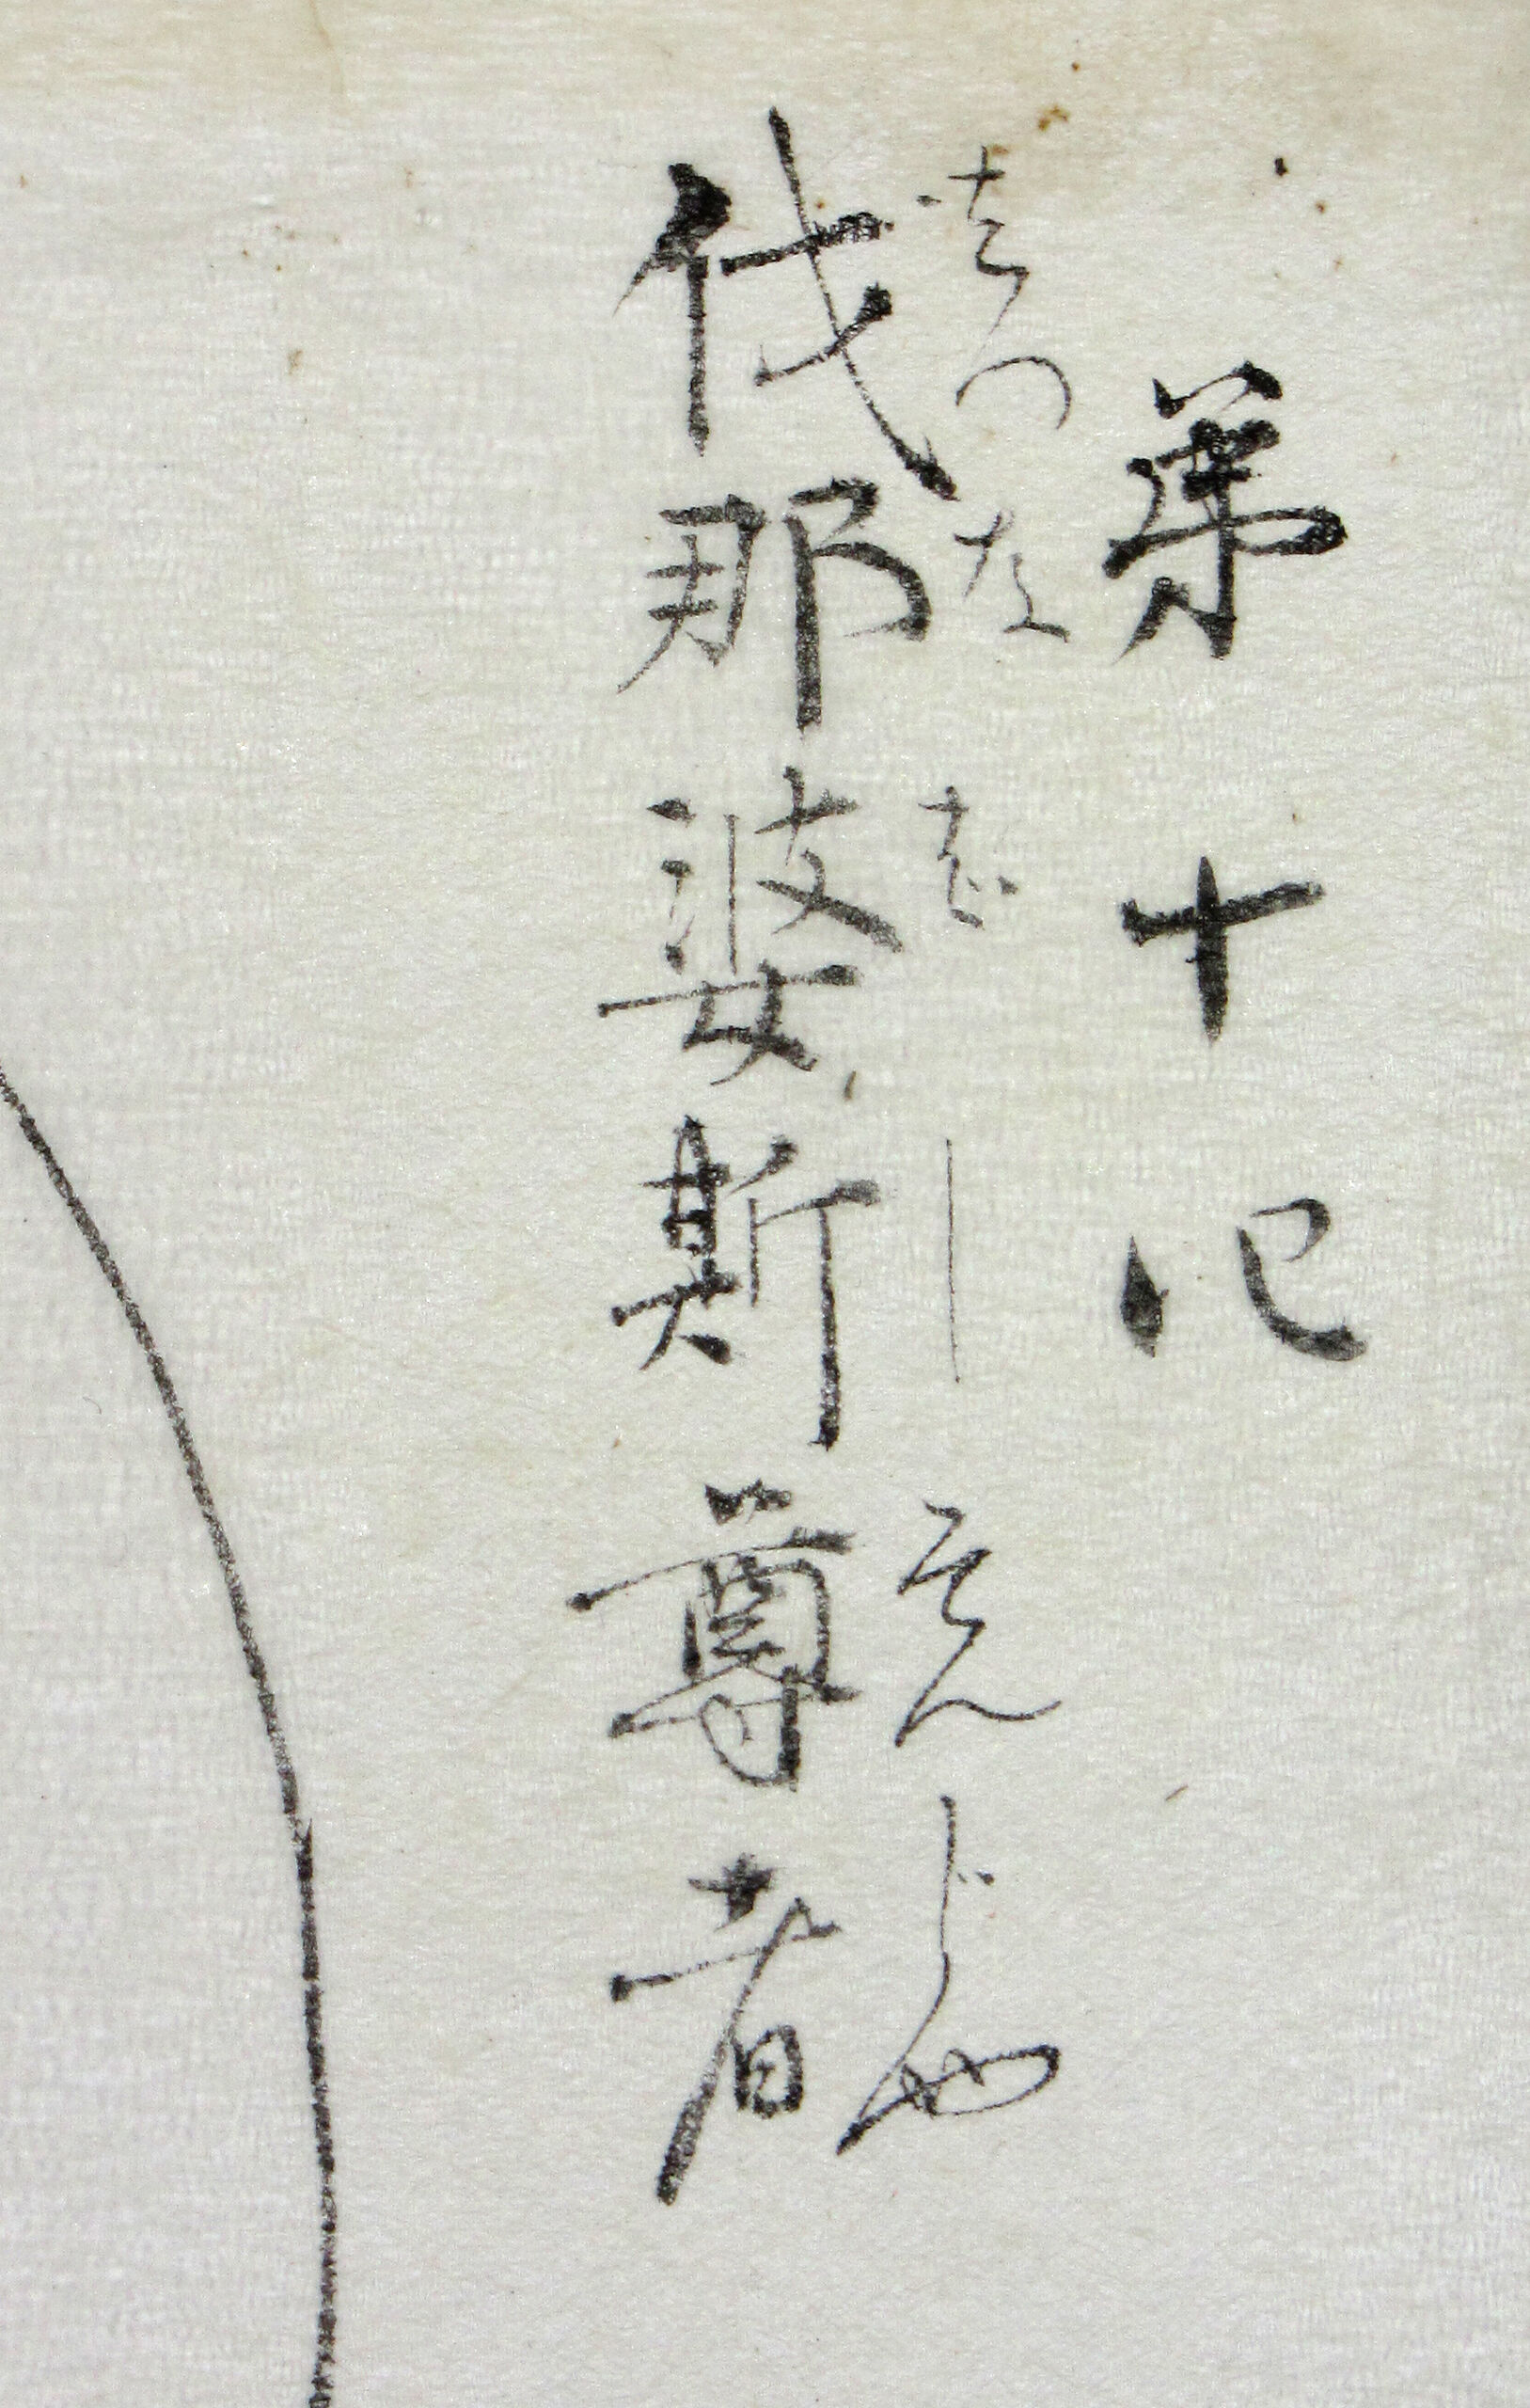 第十四
はつなばしそんじや
伐那婆斯尊者